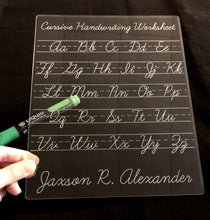 Cursive Handwriting Worksheet
Aa Bb Cc Dd Ee
Ff Gg Hh Ii Jj Kk
Ll Mm Nn Oo Pp
Qq Rr Ss Tt Uu
Vv Ww Xx Yy Zz
Jaxson R. Alexander